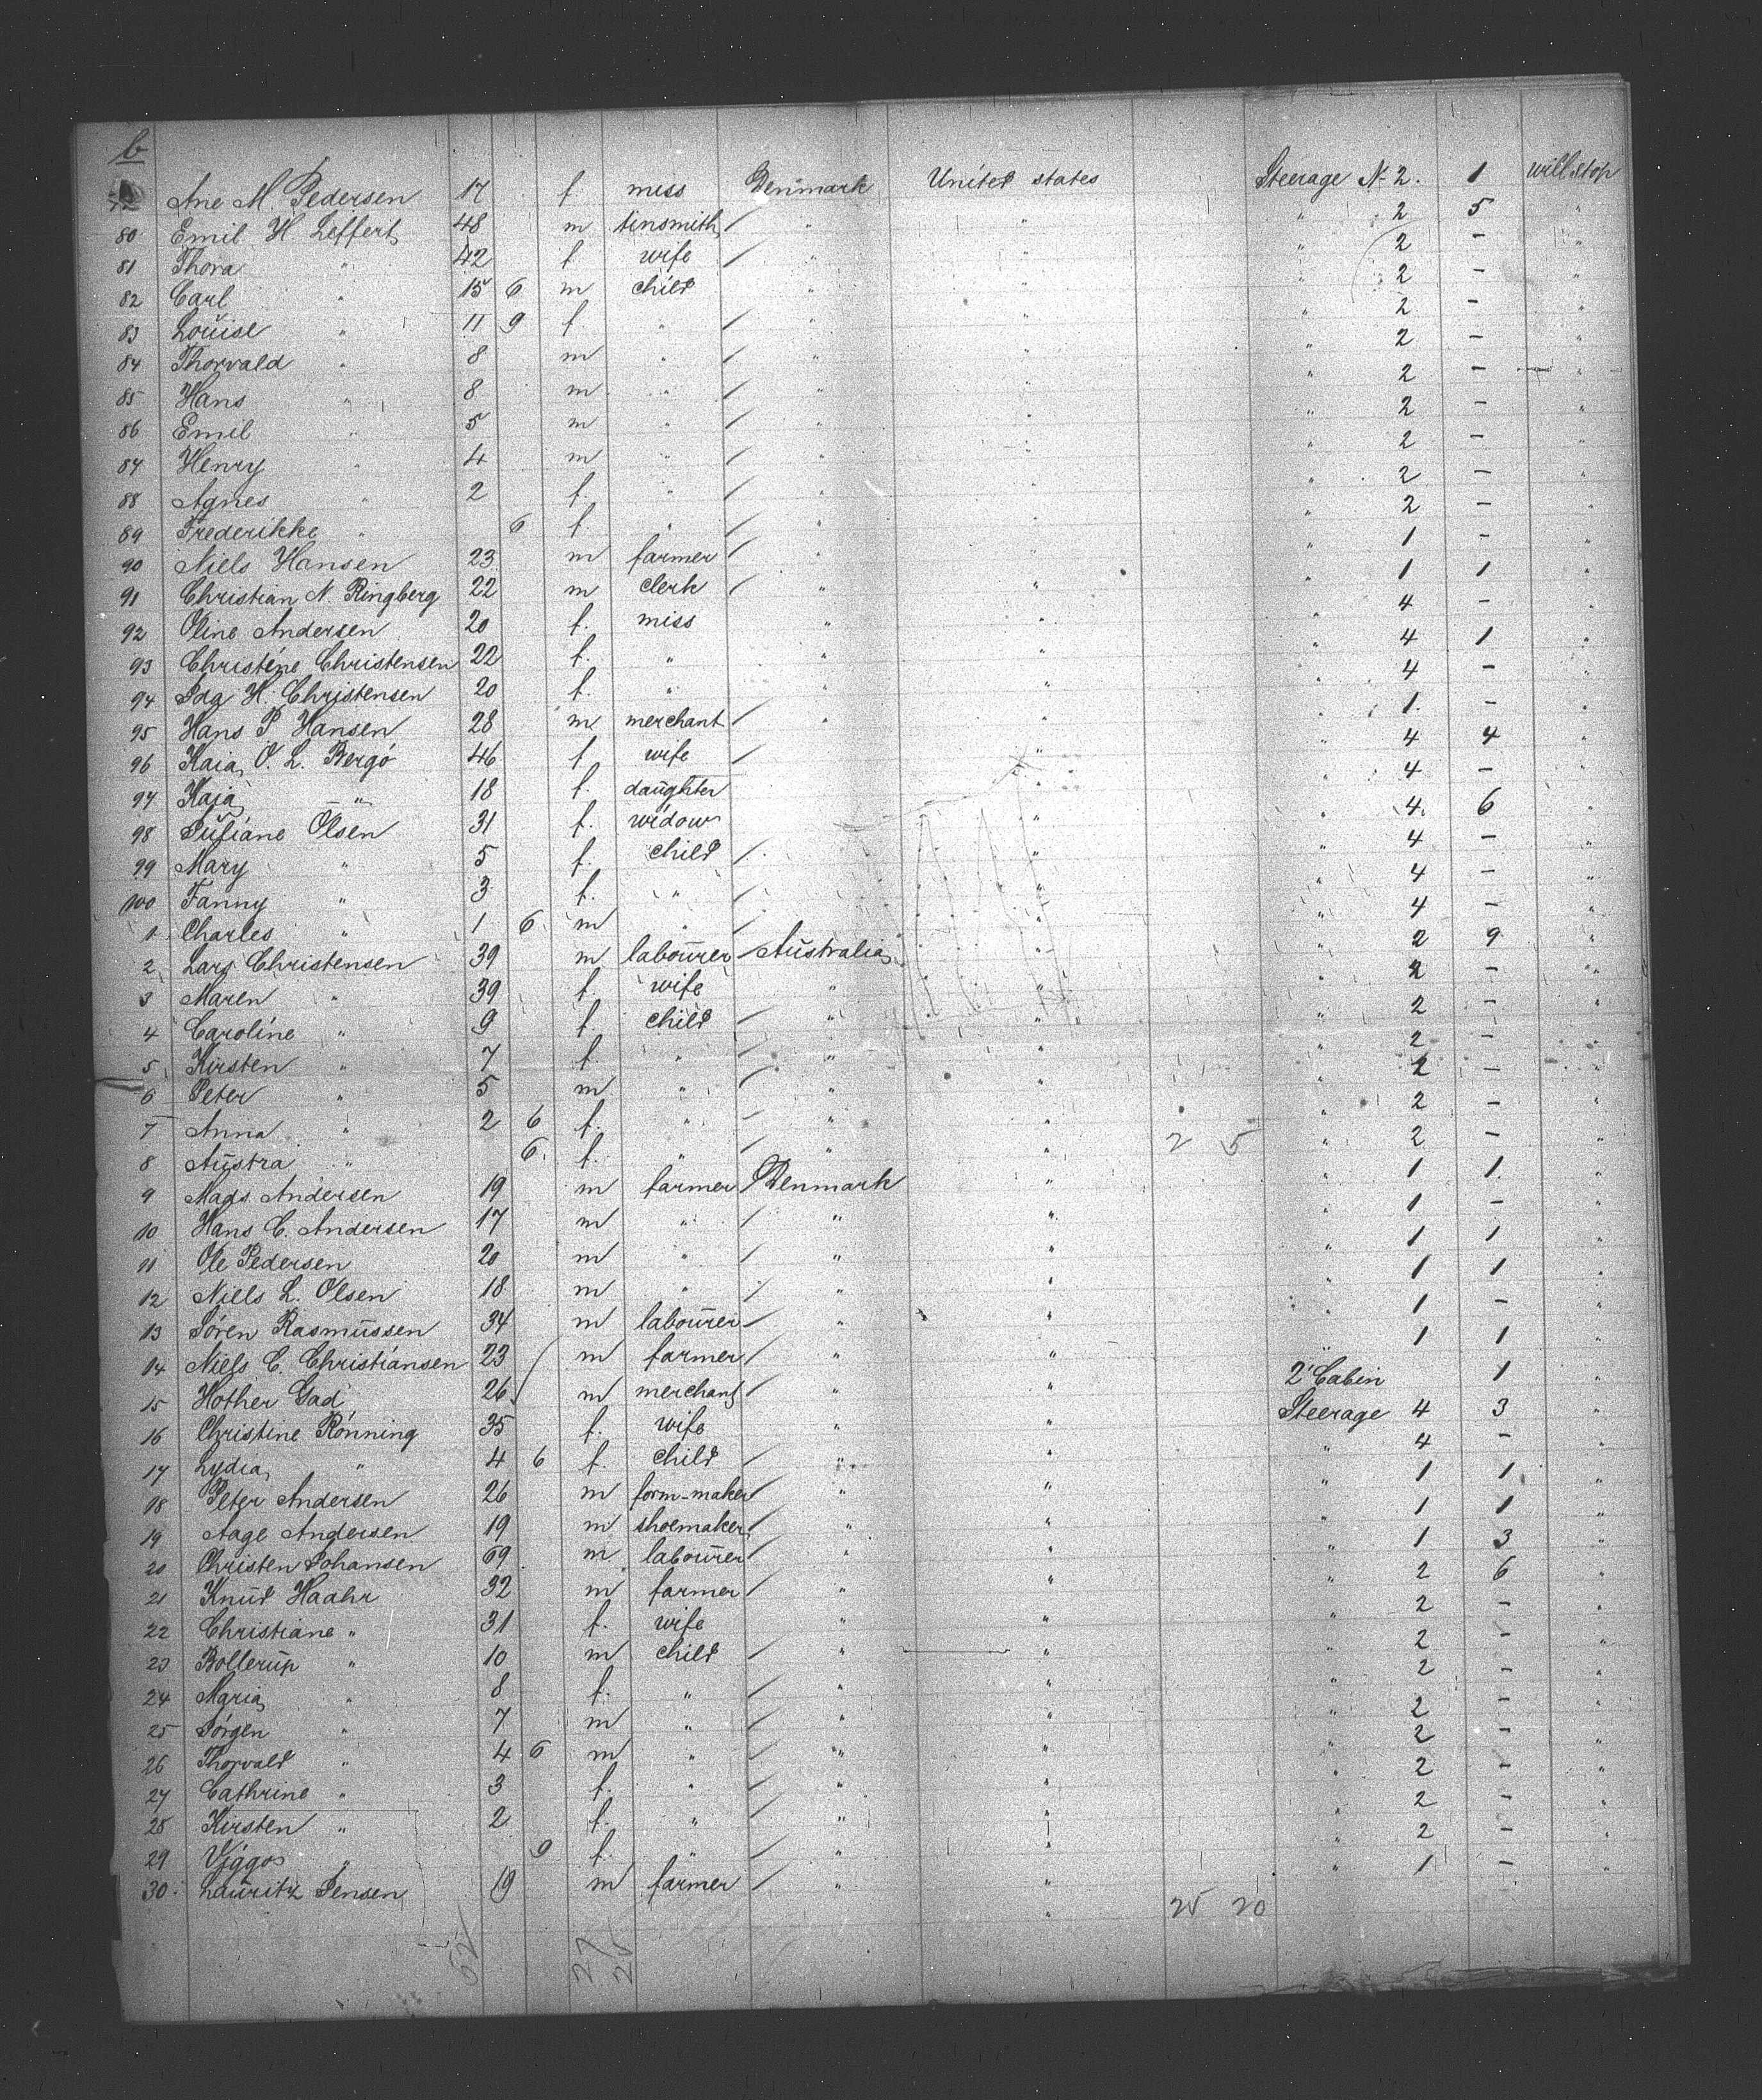 6
Ane M. Pedersen 17 f miss Denmark United states Steerage N 2. 1 will stop
80 Emil H. Leffert 48 m tinsmith / " " " 2 5 "
81 Thora " 42 f wife / " " " 2 - "
82 Carl " 15 6 m child " " " 2 - "
83 Louise " 11 9 f. " / " " " 2 - "
84 Thorvald " 8 m " / " " " 2 - "
85 Hans " 8 m " / " " " 2 - "
86 Emil " 5 m " / " " " 2 - "
87 Henry " 4 m " / " " " 2 - "
88 Agnes " 2 f. " / " " " 2 - "
89 Frederikke " 6 f. " / " " " 2 - "
90 Niels Hansen 23 m farmer / " " " 1 - "
91 Christian N. Ringberg 22 m clerk / " " " 1 1 "
92 Oline Andersen 20 f. miss " " " 4 - "
93 Christine Christensen 22 f. " " " " 4 1 "
94 Ida H. Christensen 20 f. " " " " 4 - "
95 Hans P Hansen 28 m merchant / " " " 1. - "
96 Kaia O. L. Bergó 46 f wife / " " 4 4 "
97 Kaja " 18 f. daughter " " 4 - "
98 Juliane Olsen 31 f. widow " " 4 6 "
99 Mary " 5 f. child / " " 4 - "
100 Fanny " 3 f. " / " " 4 - "
1 Charles " 1 6 m " / " " 4 - "
2 Lars Christensen 39 m labourer / Australia " " 2 9 "
3 Maren " 39 f. wife " " " 2 - "
4 Caroline " 9 f child / " " " 2 - "
5 Kirsten " 7 f. " / " " " 2 - "
6 Peter " 5 m " / " " " 2 - "
7 Anna " 2 6 f. " / " " " 2 - "
8 Austra " 6 f. " / " " 2 5 " 2 - "
9 Mads Andersen 19 m farmer / Denmark " " 1 1 "
10 Hans C. Andersen 17 m " / " " " 1 - "
11 Ole Pedersen 20 m " / " " " 1 1 "
12 Niels L. Olsen 18 m " / " " " 1 1 "
13 Sören Rasmussen 34 m labourer / " " " 1 - "
14 Niels C. Christiansen 23 m farmer / " " " 1 1 "
15 Hother Gad 26 m merchant / " " 2' Cabin 1
16 Christine Rönning 35 f. wife " " Steerage 4 3 "
17 Lydia " 4 6 f. child / " " " 4 - "
18 Peter Andersen 26 m form-maker / " " " 1 1 "
19 Aage Andersen 19 m shoemaker / " " " 1 1 "
20 Christen Johansen 69 m labourer / " " " 1 3 "
21 Knud Haahr 32 m farmer / " " " 2 6 "
22 Christiane " 31 f. wife " " " 2 - "
23 Bollerup " 10 m child / " " " 2 - "
24 Maria " 8 f. " / " " " 2 - "
25 Jörgen " 7 m " / " " " 2 - "
26 Thorvald " 4 6 m " / " " " 2 - "
27 Cathrine " 3 f. " / " " " 2 - "
28 Kirsten " 2 f. " / " " " 2 - "
29 Viggo " 9 f. " / " " " 2 - "
30 Lauritz Jensen 19 m farmer / " " " 1 - "
25 20
52 27 25